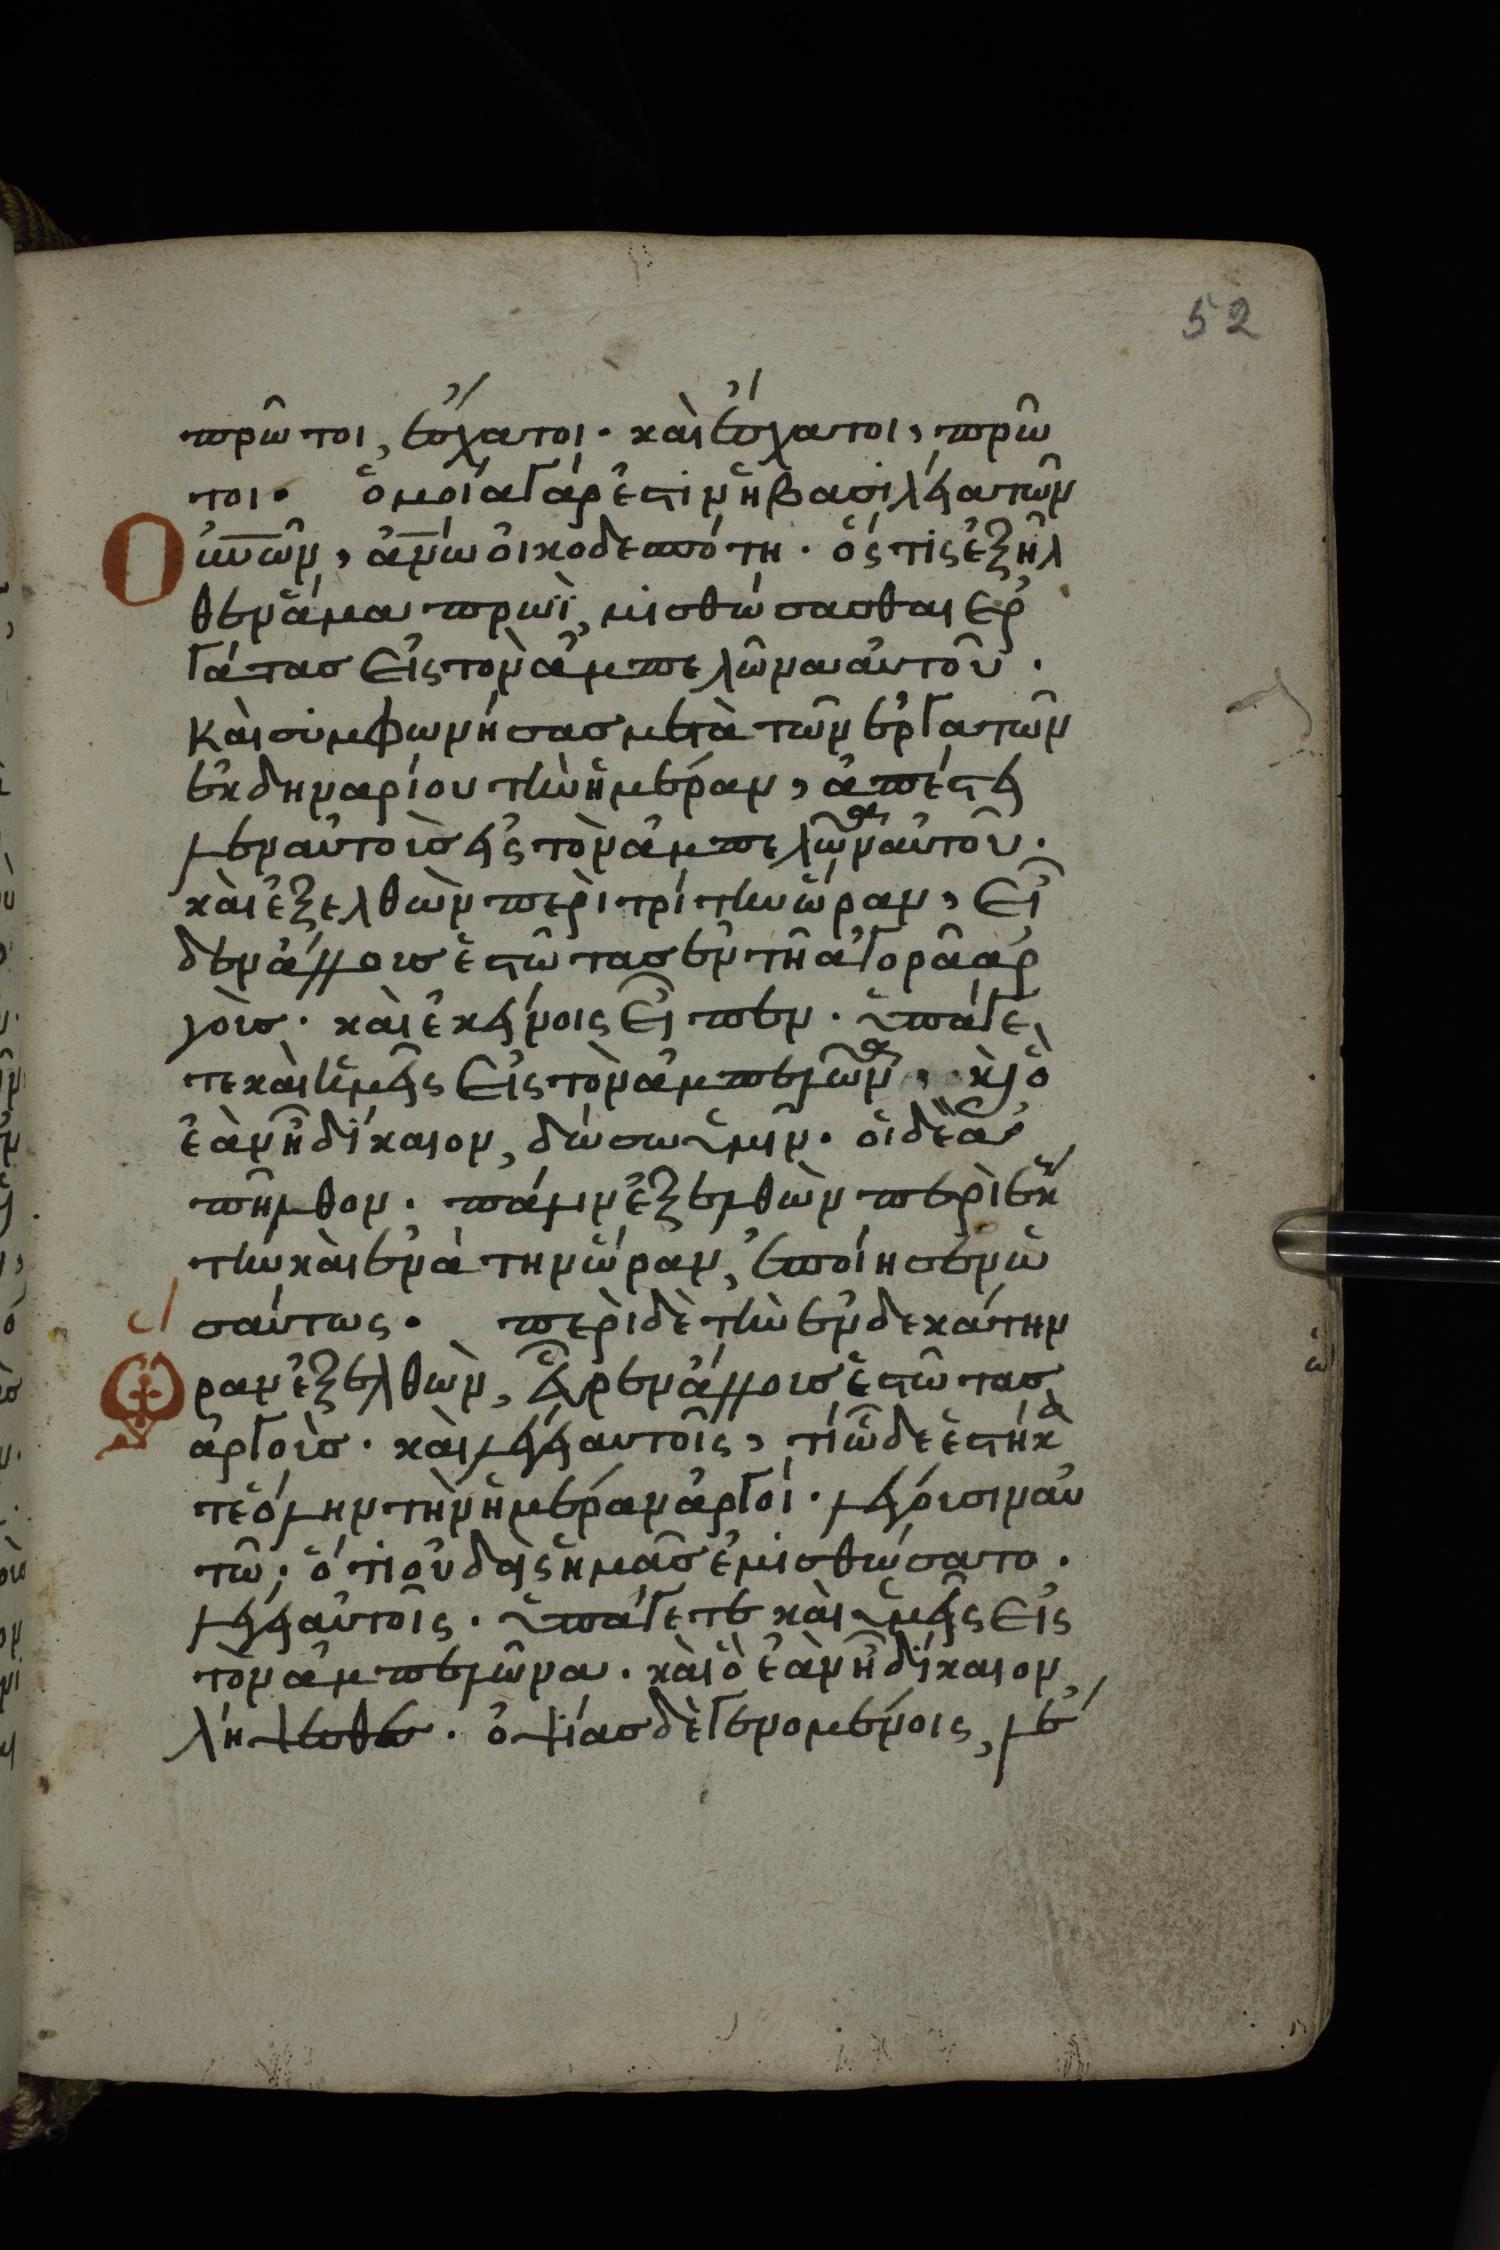 52
πρῶτοι, ἔσχατοι· καὶ ἔσχατοι, πρῶ
τοι· ὁμοία γάρ ἐστιν ἡ βασιλεία τῶν
Οὐνῶν, ἀνῶ οἰκοδεσπότη· ὅστις ἐξῆλ
θεν ἅμα πρωῒ, μισθώσασθαι ἐρ
γάτας εἰς τὸν ἀμπελῶνα αὐτοῦ·
καὶ συμφωνήσας μετὰ τῶν ἐργατῶν
ἐκ δηναρίου τὴν ἡμέραν, ἀπέστει
λεν αὐτοὺς εἰς τὸν ἀμπελῶνα αὐτοῦ·
καὶ ἐξελθὼν περὶ τρίτην ὥραν, εἶ
δεν ἄλλους ἑστῶτας ἐν τῇ ἀγορᾷ ἀρ
γούς· καὶ ἐκείνοις εἶπεν· ὑπάγε
τε καὶ ὑμεῖς εἰς τὸν ἀμπελῶνα, κὶ ὃ
ἐὰν ᾖ δίκαιον, δώσω ὑμῖν· οἱ δὲ ἀ
πῆλθον· πάλιν ἐξελθὼν περὶ ἕκ
την καὶ ἐνάτην ὥραν, ἐποίησεν ὡ
σαύτως· περὶ δὲ τὴν ἑνδεκάτην
ὥ
ραν ἐξελθὼν, εὗρεν ἄλλους ἑστῶτας
ἀργούς· καὶ λέγει αὐτοῖς, τί ὧδε ἑστήκα
τε ὅλην τὴν ἡμέραν ἀργοί· λέγουσιν αὐ
τῶ· ὅτι οὐδεὶς ἡμᾶς ἐμισθώσατο·
λέγει αὐτοῖς· ὑπάγετε καὶ ὑμεῖς εἰς
τὸν ἀμπελῶνα· καὶ ὃ ἐὰν ᾖ δίκαιον
λήψεσθε· ὀψίας δὲ γενομένοις, λέ